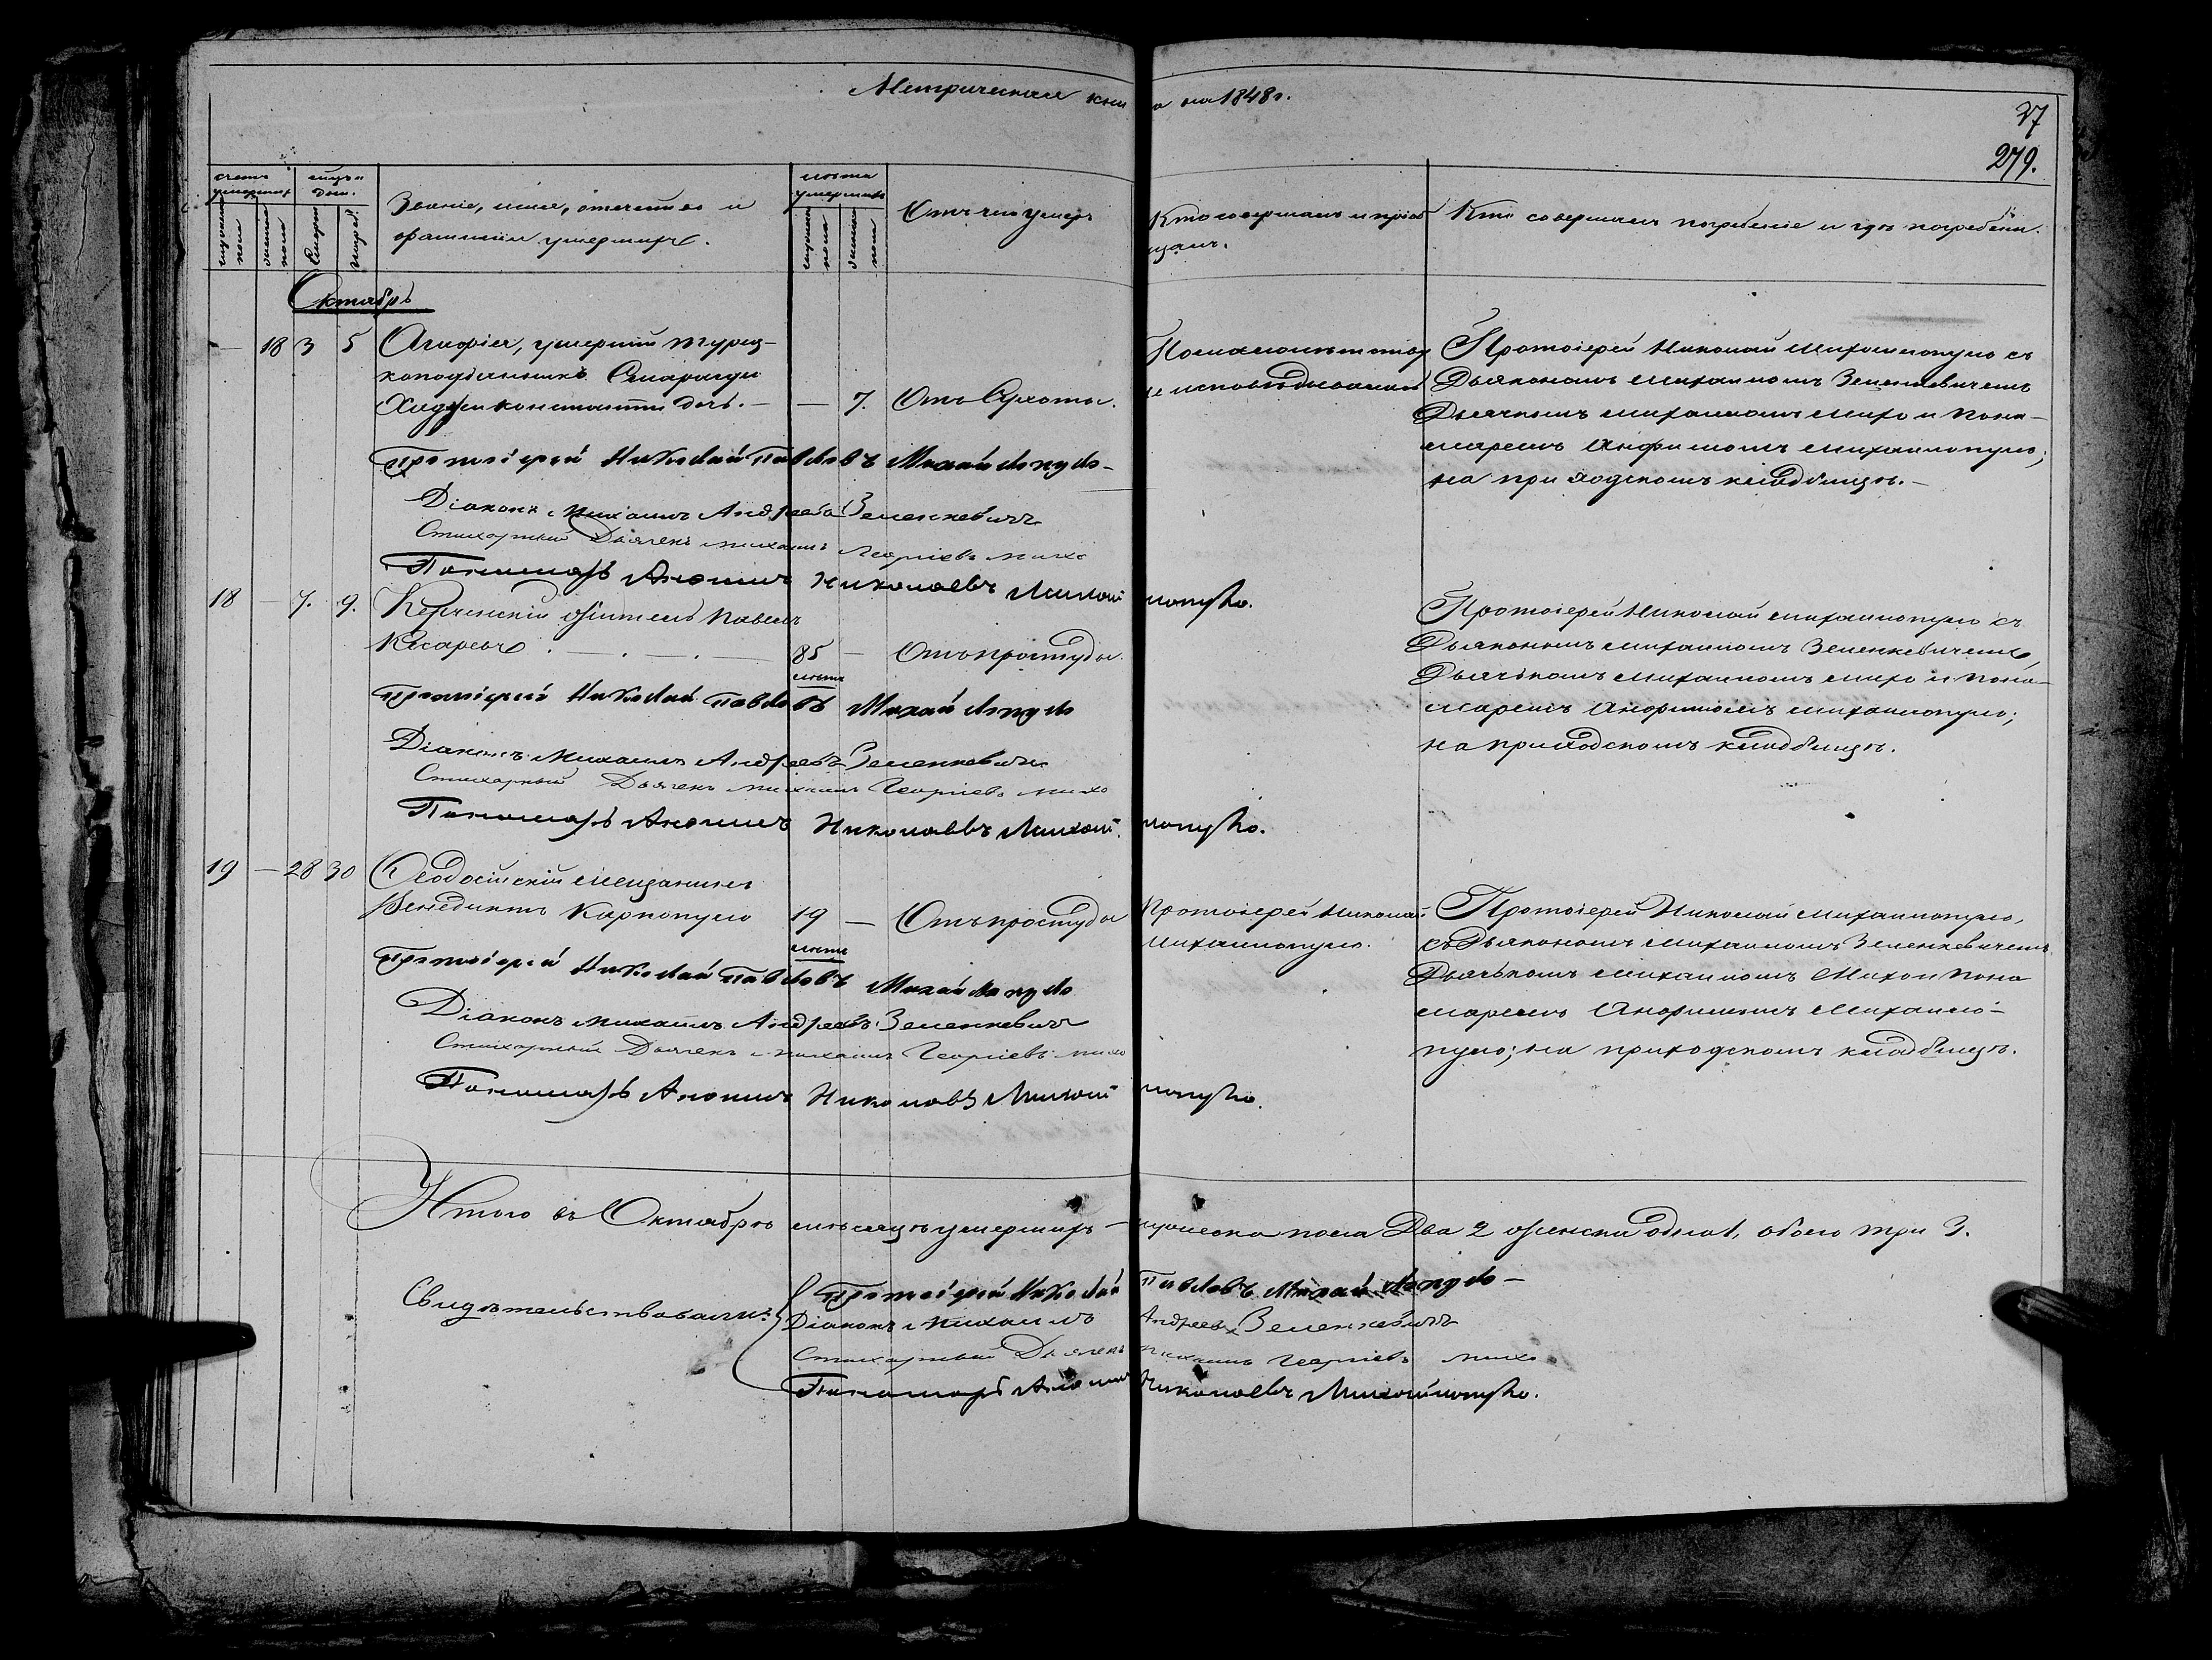 Метрическая книга на 1848 г.
37
279.
счетъ умершихъ
мужеска пола
женска пола
мѣсяцъ и день.
Смерти
погреб.
Званіе, имя, отечество и
фамилія умершихъ.
лѣта умершихъ
мужеска пола
женска пола
Отъ чего умеръ
Кто исповѣдывалъ и пріобщалъ.
Кто совершалъ погребеніе и гдѣ погребены.
Октябрь
— 18 3 5
Агафія, умершій турец-
коподданнаго Смарагди
Хаджи константи дочь. — — 7. Отъ Сухоты.
По малолѣтству
не исповѣдывалась
Протоіерей Николай Михаилопуло съ
Дьякономъ Михаиломъ Зеленкевичемъ
Дьячкомъ Михаиломъ Михо и поно-
маремъ Анфимомъ Михаилопуло;
на приходскомъ кладбищѣ. —
Протоіерей Николай Павловъ Михайлопуло —
Діаконъ Михаилъ Андреевъ Зеленкевичъ
Стихарный Дьячекъ Михаилъ Георгіевъ Михо
Пономарь Анфимъ Николаевъ Михайлопуло.
18 — 7. 9.
Керченскій житель Павелъ
Кесаревъ . — . — . — 85 — Отъ простуды.
лѣтъ
Протоіерей Николай Михаилопуло съ
Дьякономъ Михаиломъ Зеленкевичемъ,
Дьячкомъ Михаиломъ Михо и поно-
маремъ Анфимомъ Михаилопуло;
на приходскомъ кладбищѣ.
Протоіерей Николай Павловъ Михайлопуло
Діаконъ Михаилъ Андреевъ Зеленкевичъ
Стихарный Дьячекъ Михаилъ Георгіевъ Михо
Пономарь Анфимъ Николаевъ Михайлопуло.
19 — 28 30
Ѳеодосійскій мещанинъ
Венедиктъ Карпопуло 19 — Отъ простуды
лѣтъ
Протоіерей Николай
Михаилопуло.
Протоіерей Николай Михаилопуло,
съ Дьякономъ Михаиломъ Зеленкевичемъ
Дьячкомъ Михаиломъ Михо и поно
маремъ Анфимомъ Михаило-
пуло; на приходскомъ кладбищѣ.
Протоіерей Николай Павловъ Михайлопуло
Діаконъ Михаилъ Андреевъ Зеленкевичъ
Стихарный Дьячекъ Михаилъ Георгіевъ Михо
Пономарь Анфимъ Николаевъ Михайлопуло.
Итого въ Октябрѣ мѣсяцѣ умершихъ — мужеска пола Два 2 женска одна 1, обоего три 3.
Свидѣтельствовали:
Протоіерей Николай Павловъ Михайлопуло —
Діаконъ Михаилъ Андреевъ Зеленкевичъ
Стихарный Дьячекъ Михаилъ Георгіевъ Михо
Пономарь Анфимъ Николаевъ Михайлопуло.